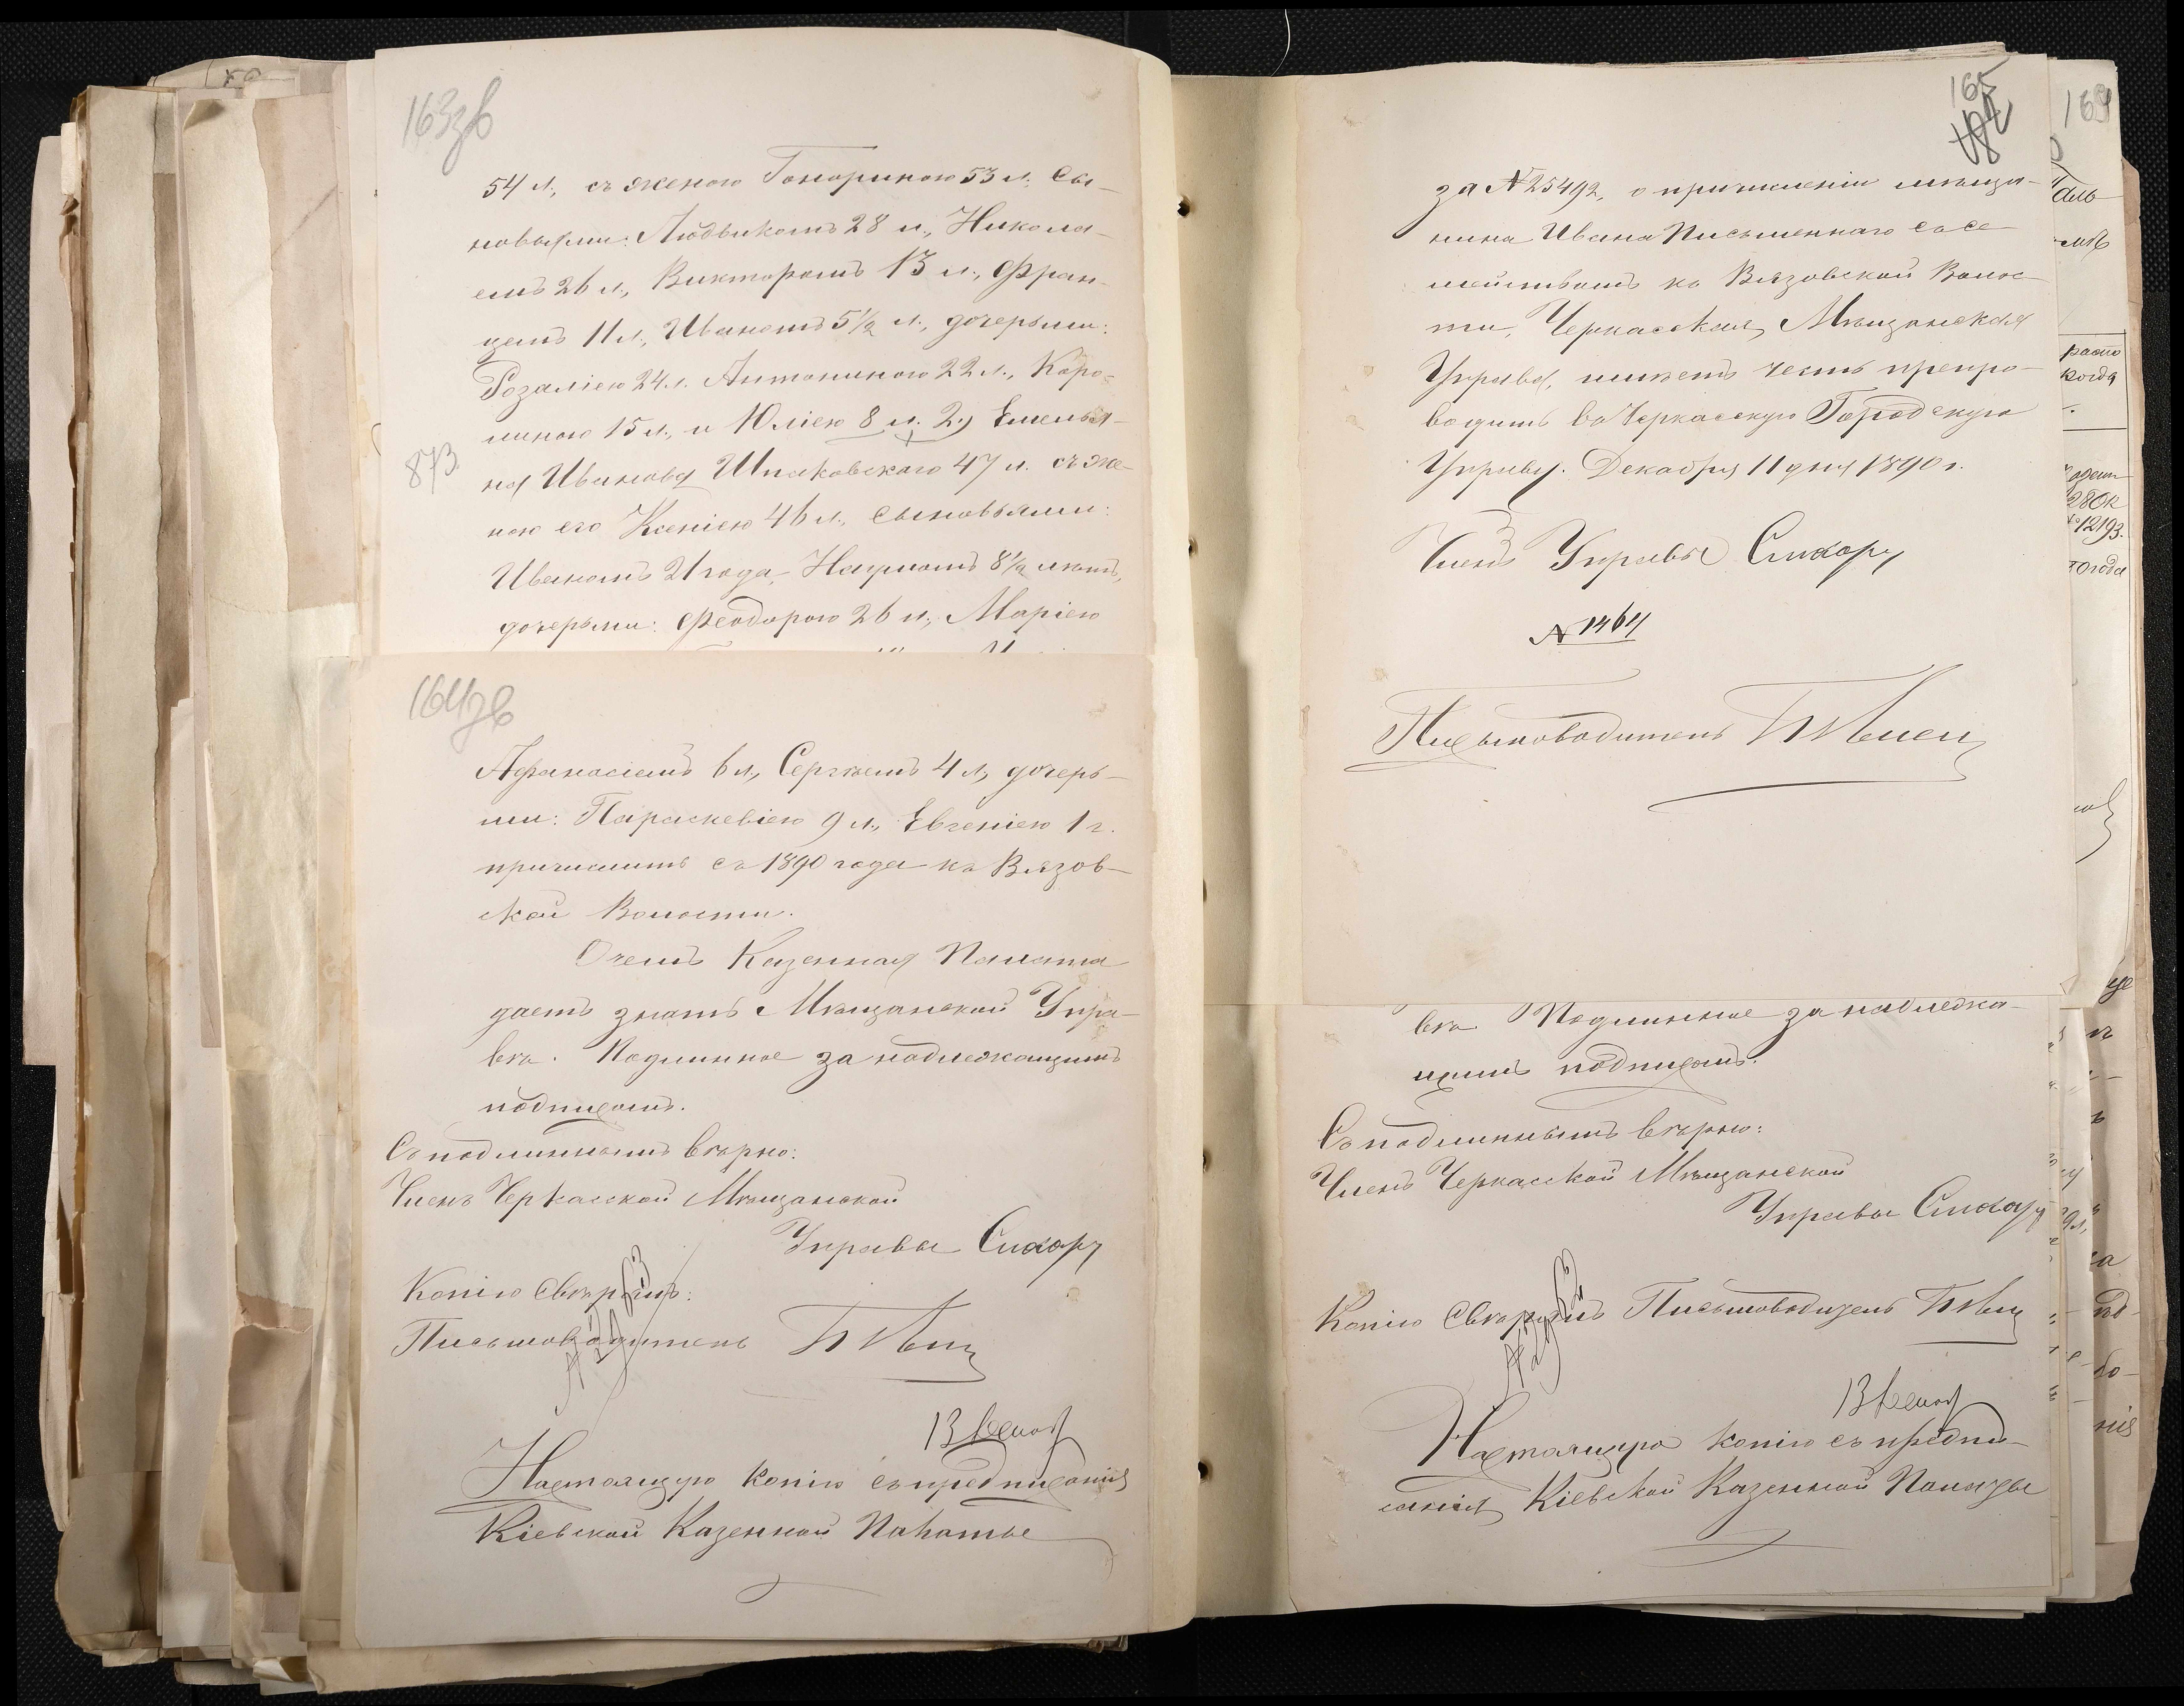 163зв
54 л., съ женою Гонориною 53 л. сы-
новьями: Людвикомъ 28 л., Никола-
емъ 26 л., Викторомъ 13 л., Фран-
цемъ 11 л., Иваномъ 5½ л., дочерьми:
Розаліею 24 л. Антониною 22 л., Каро-
линою 15 л., и Юліею 8 л. 2.) Емелья-
873
на Иванова Шпаковскаго 47 л. съ же-
ною его Ксеніею 46 л., сыновьями:
Иваномъ 21 года, Наумомъ 8½ лѣтъ,
дочерьми: Феодорою 26 л., Маріею
164зв
Афанасіемъ 6 л., Сергѣемъ 4 л., дочерь-
ми: Параскевіею 9 л., Евгеніею 1 г.
причислить съ 1890 года къ Вязов-
ской Волости.
О чемъ Казенная Палата
даетъ знать Мѣщанской Упра-
вѣ. Подлинное за надлежащимъ
подписомъ.
Съ подлиннымъ вѣрно:
Членъ Черкасской Мѣщанской
Управы
Копію свѣрялъ:
Письмоводитель
Настоящую копію съ предписанія
Кіевской Казенной Палаты
165
за № 25492, о причисленіи мѣща-
нина Ивана Письменнаго со се-
мействомъ къ Вязовской Волос-
ти, Черкасская Мѣщанская
Управа, имѣетъ честь препро-
водить въ Черкасскую Городскую
Управу. Декабря 11 дня 1890 г.
Членъ Управы
№ 1464
Письмоводитель
вѣ. Подлинное за надлежа-
щимъ подписомъ.
Съ подлиннымъ вѣрно:
Членъ Черкасской Мѣщанской
Управы
Копію свѣрялъ Письмоводитель
Настоящую копію съ предпи-
санія Кіевской Казенной Палаты
169
280к
12193.